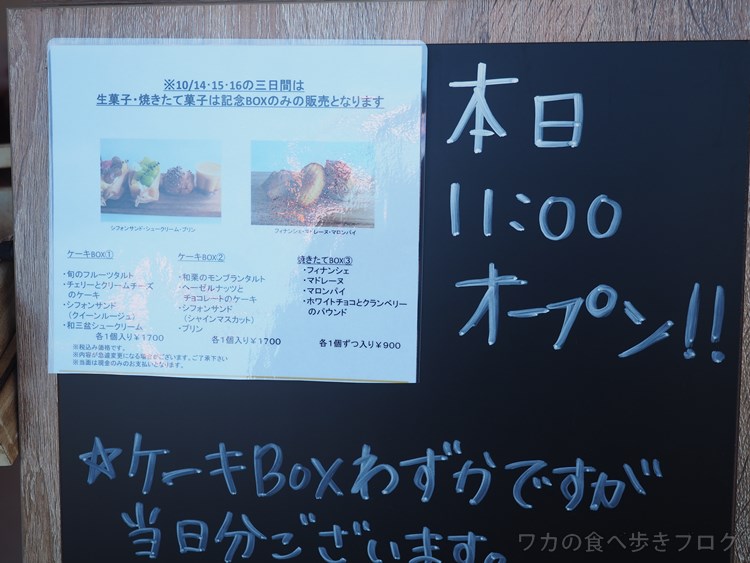 ※10/14・15・16の三日間は
生菓子・焼きたて菓子は記念BOXのみの販売となります
シフォンサンド・シュークリーム・プリン
フィナンシェ・マドレーヌ・マロンパイ
ケーキBOX①
・旬のフルーツタルト
・チェリーとクリームチーズ
のケーキ
・シフォンサンド
(クイーンルージュ)
・和三盆シュークリーム
各1個入り¥1700
ケーキBOX②
・和栗のモンブランタルト
・ヘーゼルナッツと
チョコレートのケーキ
・シフォンサンド
(シャインマスカット)
・プリン
各1個入り¥1700
焼きたてBOX③
・フィナンシェ
・マドレーヌ
・マロンパイ
・ホワイトチョコとクランベリー
のパウンド
各1個ずつ入り¥900
※税込み価格です。
※内容が急遽変更になる場合がございます。ご了承下さい
※当面は現金のみのお支払いとなります。
本日
11:00
オープン!!
☆ケーキBOXわずかですが
当日分ございます。
ワカの食べ歩きブログ